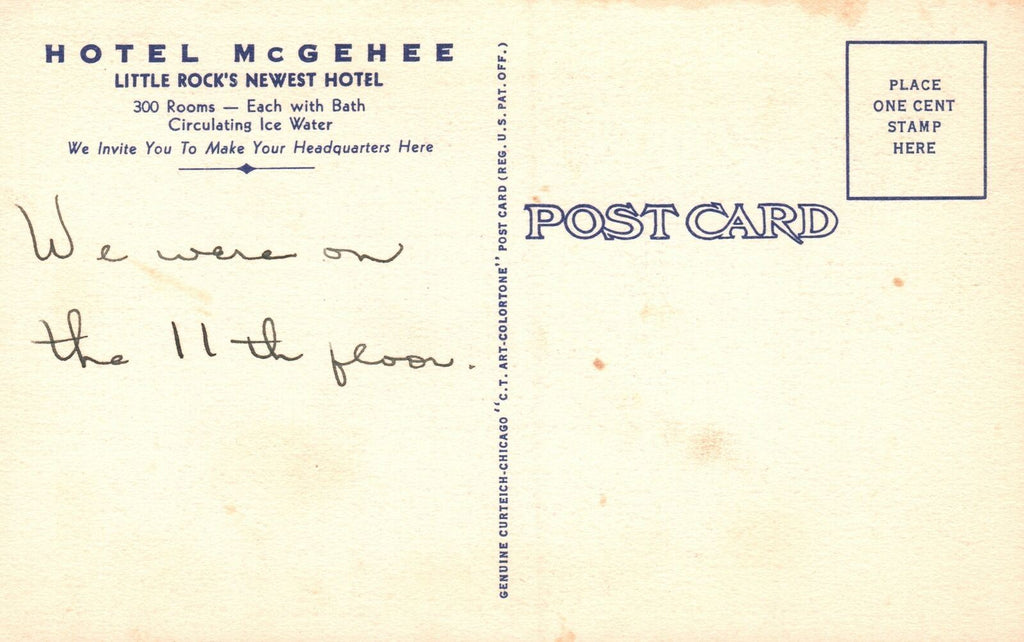 HOTEL McGEHEE
LITTLE ROCK'S NEWEST HOTEL
300 Rooms — Each with Bath
Circulating Ice Water
We Invite You To Make Your Headquarters Here
We were on
the 11th floor.
GENUINE CURTEICH-CHICAGO "C.T. ART-COLORTONE" POST CARD (REG. U.S. PAT. OFF.)
POST CARD
PLACE
ONE CENT
STAMP
HERE